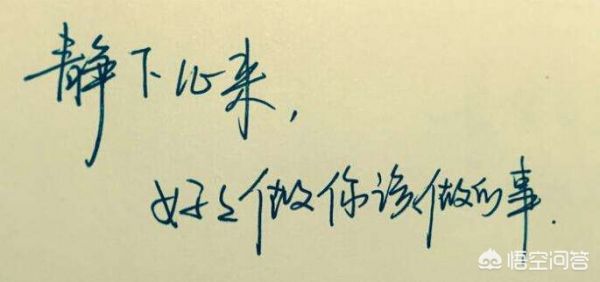 静下心来，
好好做你该做的事.
悟空问答